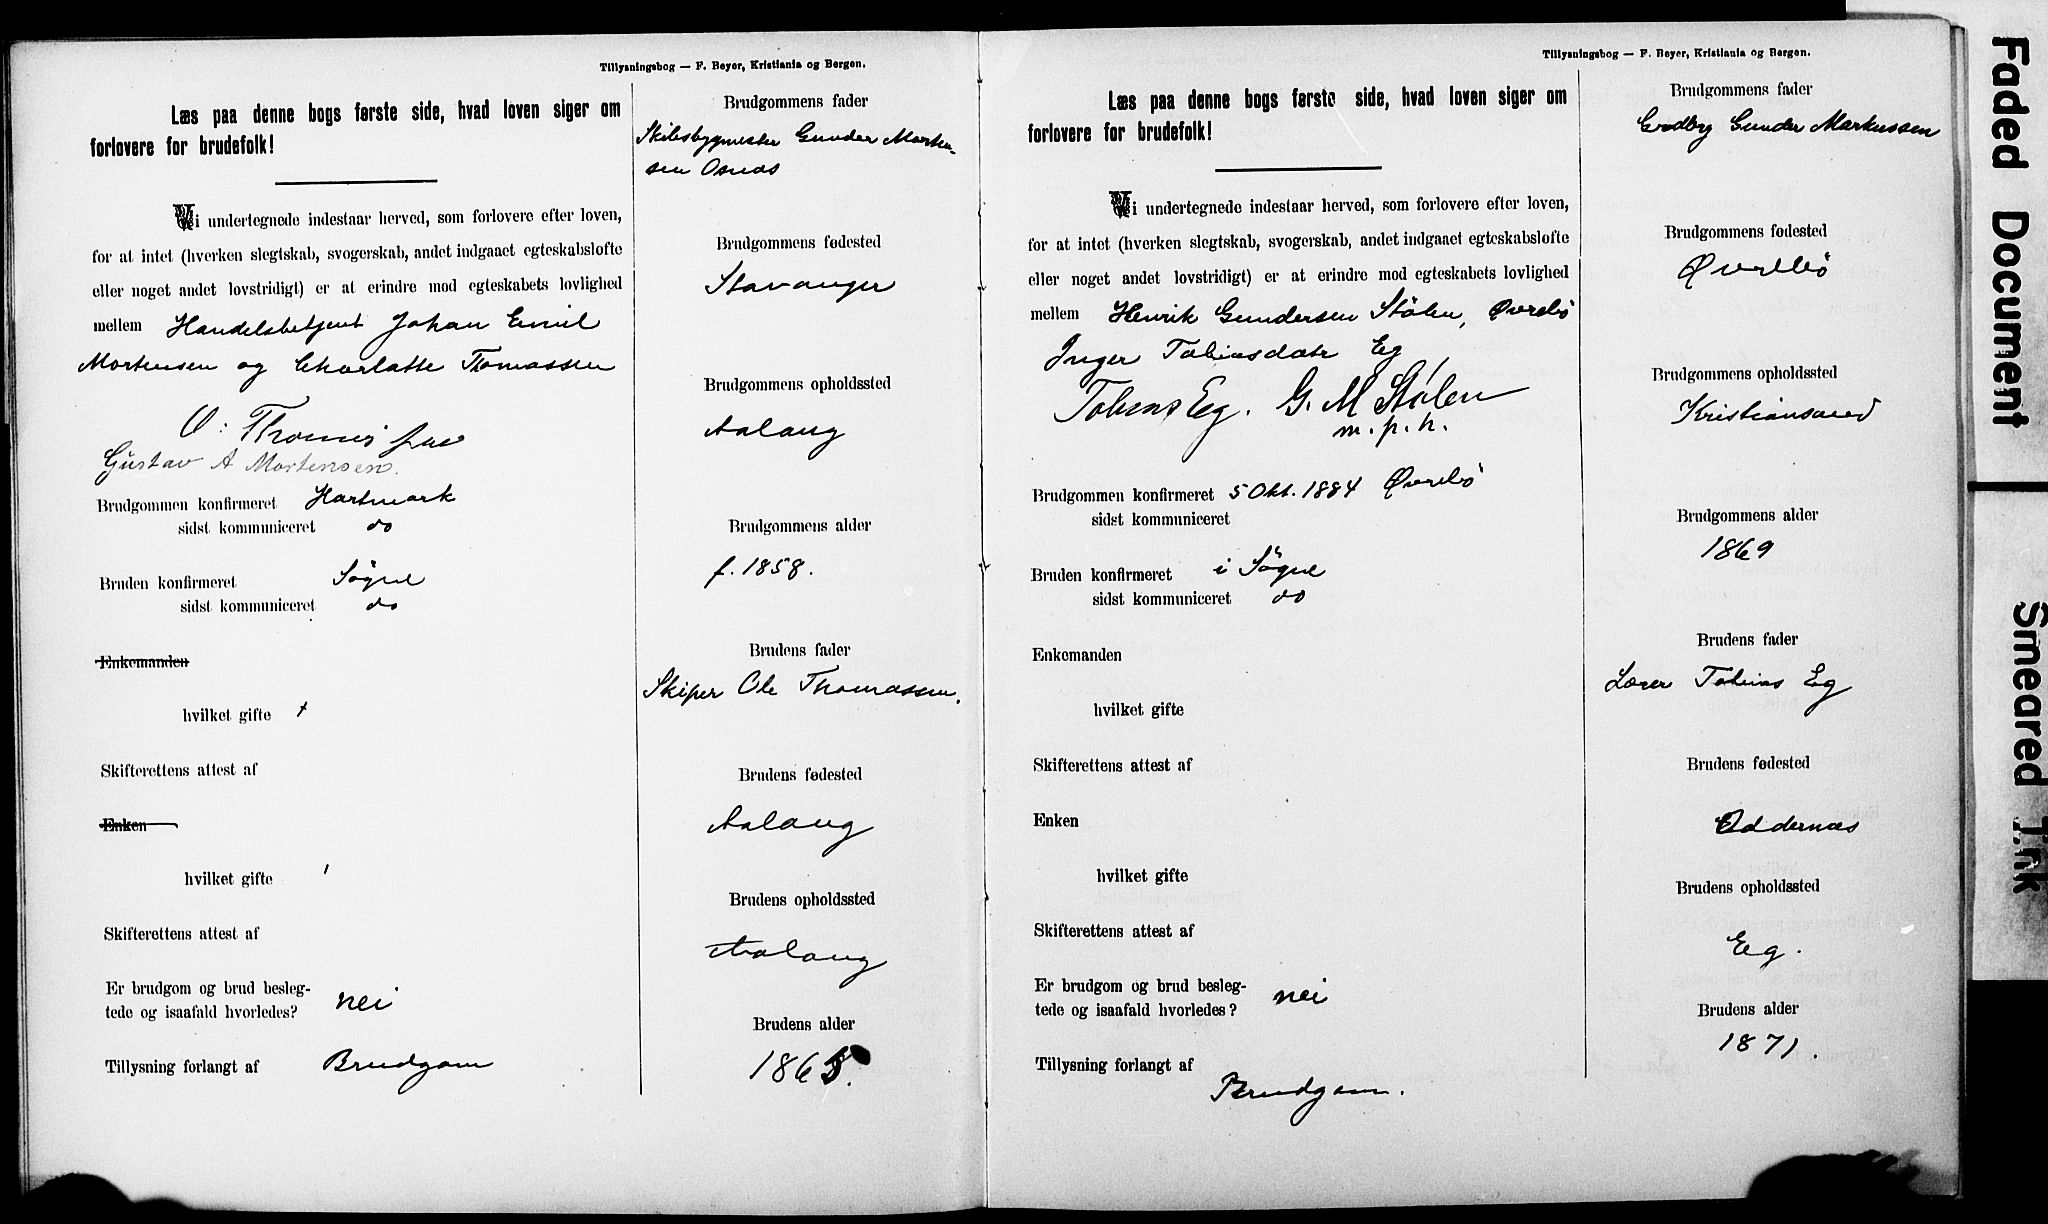 Tillysningsbog — F. Beyer, Kristiania og Bergen.
Læs paa denne bogs første side, hvad loven siger om
forlovere for brudefolk!
Vi undertegnede indestaar herved, som forlovere efter loven,
for at intet (hverken slegtskab, svogerskab, andet indgaaet egteskabsløfte
eller noget andet lovstridigt) er at erindre mod egteskabets lovlighed
mellem Handelsbetjent Johan Emil
Mortensen og Charlotte Thomassen
O. Thomassen
Gustav A Mortensen.
Brudgommen konfirmeret Hartmark
sidst kommuniceret do
Bruden konfirmeret Søgne
sidst kommuniceret do
Enkemanden
hvilket gifte
Skifterettens attest af
Enken
hvilket gifte
Skifterettens attest af
Er brudgom og brud besleg-
tede og isaafald hvorledes? nei
Tillysning forlangt af Brudgom
Brudgommens fader
Skibsbygmester Gunder Morten-
sen Osnæs
Brudgommens fødested
Stavanger
Brudgommens opholdssted
Aalaug
Brudgommens alder
f. 1858.
Brudens fader
Skiper Ole Thomassen.
Brudens fødested
Aalaug
Brudens opholdssted
Aalaug
Brudens alder
Tillysningsbog — F. Beyer, Kristiania og Bergen.
Læs paa denne bogs første side, hvad loven siger om
forlovere for brudefolk!
Vi undertegnede indestaar herved, som forlovere efter loven,
for at intet (hverken slegtskab, svogerskab, andet indgaaet egteskabsløfte
eller noget andet lovstridigt) er at erindre mod egteskabets lovlighed
mellem Henrik Gundersen Stölen, Øvrebö
Inger Tobiasdatr Eg
Tobias Eg. G. M Stølen
m. p. h.
Brudgommen konfirmeret 5 Okt. 1884 Øvrebö
sidst kommuniceret
Bruden konfirmeret i Søgne
sidst kommuniceret do
Enkemanden
hvilket gifte
Skifterettens attest af
Enken
hvilket gifte
Skifterettens attest af
Er brudgom og brud besleg-
tede og isaafald hvorledes? nei
Tillysning forlangt af
Brudgom.
Brudgommens fader
Grdbr Gunder Markussen
Brudgommens fødested
Øvrebö
Brudgommens opholdssted
Kristiansand
Brudgommens alder
1869
Brudens fader
Lærer Tobias Eg
Brudens fødested
Oddernæs
Brudens opholdssted
Eg.
Brudens alder
1871.
Faded Document
Smeared Ink